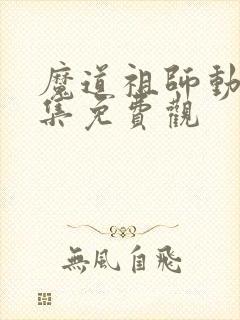 魔道祖師動
集免費觀
無風自飛